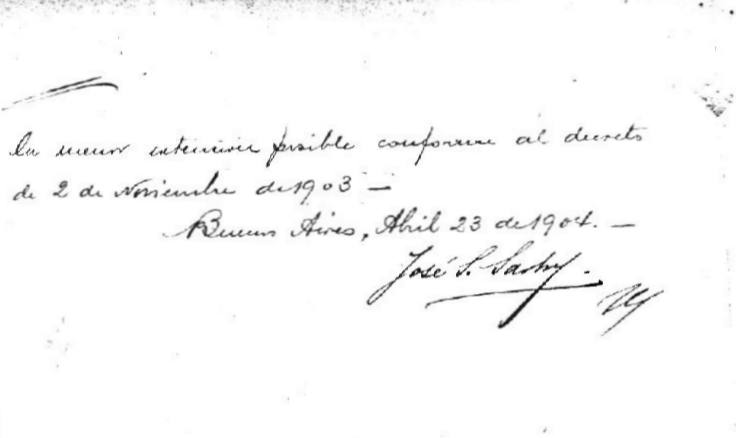 la menor extension posible conforme al decreto
de 2 de Noviembre de 1903 —
Buenos Aires, Abril 23 de 1904. —
José S.